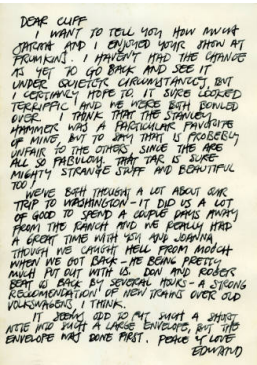 DEAR CLIFF
I WANT TO TELL YOU HOW MUCH
AND I ENJOYED YOUR SHOW AT
FRUMKINS. I HAVEN'T HAD THE CHANCE
AS YET TO GO BACK AND SEE IT
UNDER QUIETER CIRCUMSTANCES, BUT
I CERTAINLY HOPE TO. IT SURE LOOKED
TERRIFFIC AND WE WERE BOTH BOWLED
OVER. I THINK THAT THE STANLEY
HAMMER WAS A PARTICULAR FAVORITE
OF MINE BUT TO SAY THAT IS PROBERLY
UNFAIR TO THE OTHERS, SINCE THE ARE
ALL SO FABULOUS. THAT TAR IS SURE
MIGHTY STRANGE STUFF AND BEAUTIFUL
TOO.
WE'VE BOTH THOUGHT A LOT ABOUT OUR
TRIP TO WASHINGTON - IT DID US A LOT
OF GOOD TO SPEND A COUPLE DAYS AWAY
FROM THE RANCH AND WE REALLY HAD
A GREAT TIME WITH YOU AND JOANNA
THOUGH WE CAUGHT HELL FROM MOOCH
WHEN WE GOT BACK - HE BEING PRETTY
MUCH PUT OUT WITH US. DON AND ROGERS
BEAT US BACK BY SEVERAL HOURS - A STRONG
RECOMENDATION OF NEW TRAINS OVER OLD
VOLKSWAGENS, I THINK.
IT SEEMS ODD TO PUT SUCH A SHORT
NOTE INTO SUCH A LARGE ENVELOPE, BUT THE
ENVELOPE WAS DONE FIRST. PEACE & LOVE
EDWARD